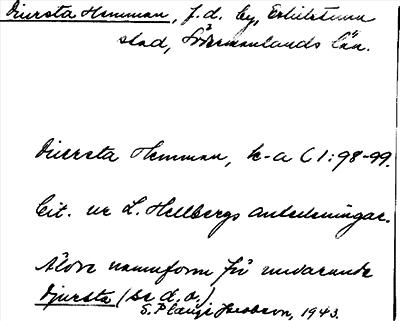 Diursta Hemman, f.d. by, Eskilstuna
stad, Södermanlands län.
Diursta Hemman, k-a C 1:98-99.
Cit. ur L. Hellbergs anteckningar.
Äldre namnform för nuvarande
Djursta (se d.o.)
S. Plaugi Jacobson, 1943.